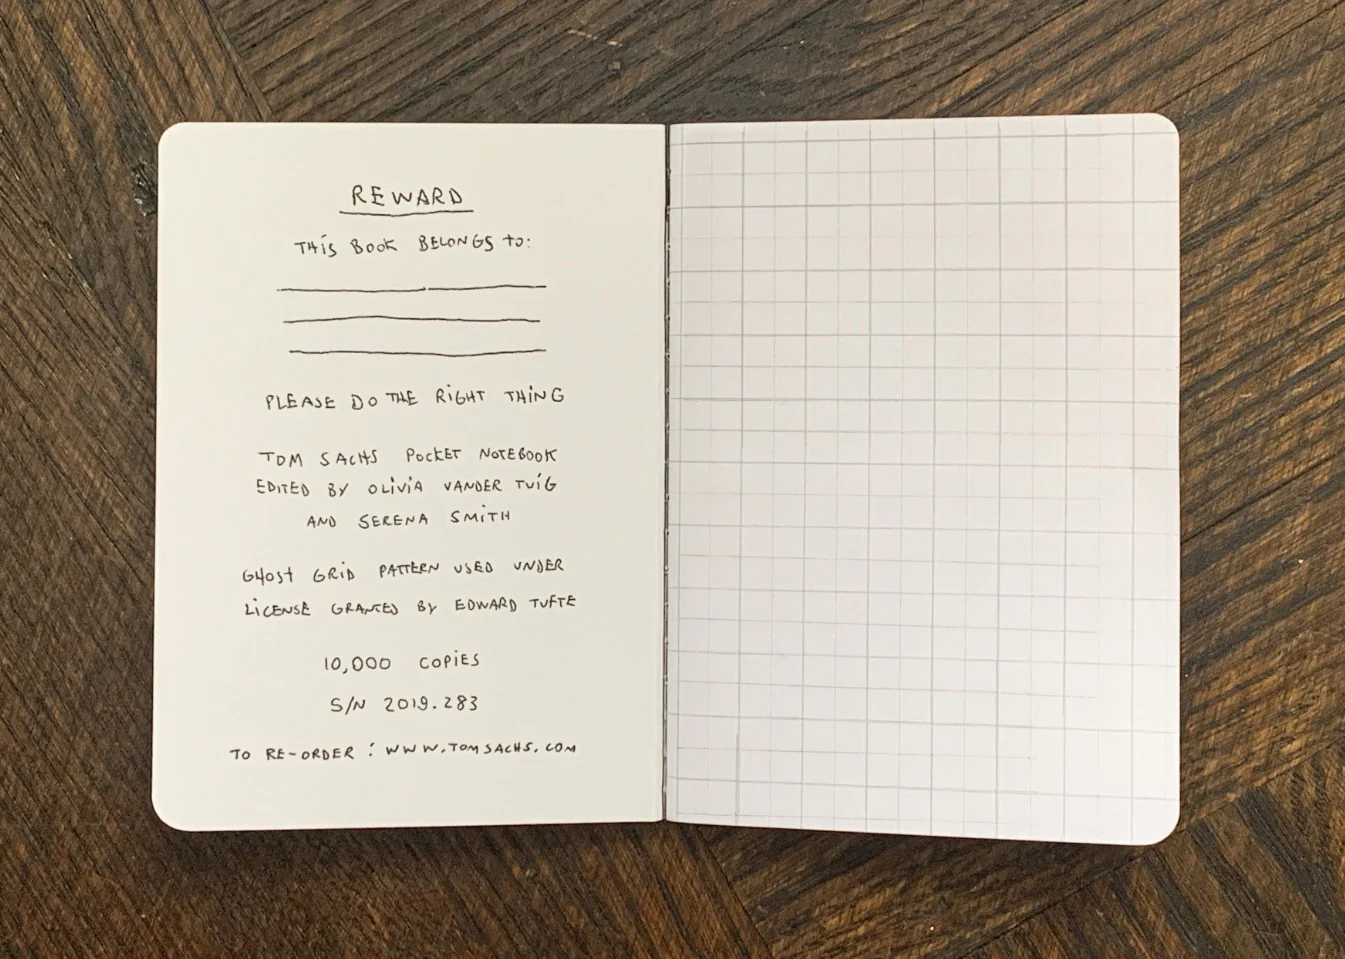 REWARD
THIS BOOK BELONGS TO:
PLEASE DO THE RIGHT THING
TOM SACHS POCKET NOTEBOOK
EDITED BY OLIVIA VANDER TUIG
AND SERENA SMITH
GHOST GRID PATTERN USED UNDER
LICENSE GRANTED BY EDWARD TUFTE
10,000 COPIES
S/N 2019.283
TO RE-ORDER: WWW.TOMSACHS.COM